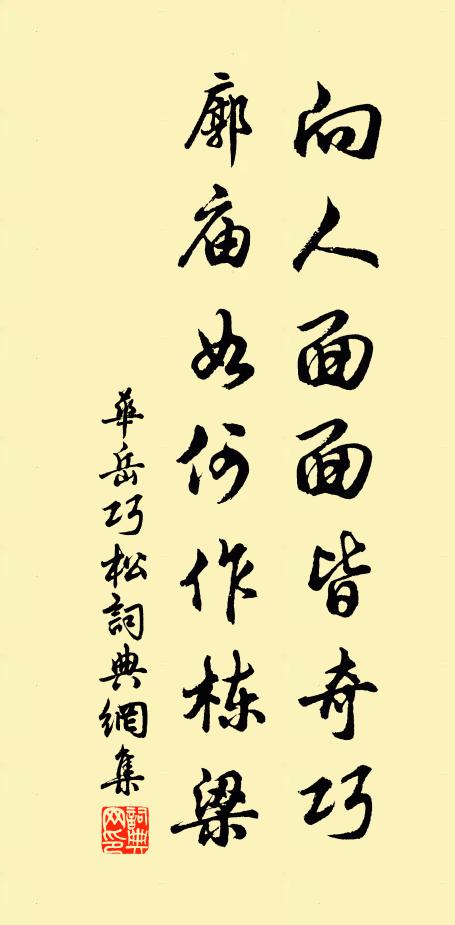 向人面面皆奇巧
廓庙如何作栋梁
華岳巧松詞典網集
詞典網印